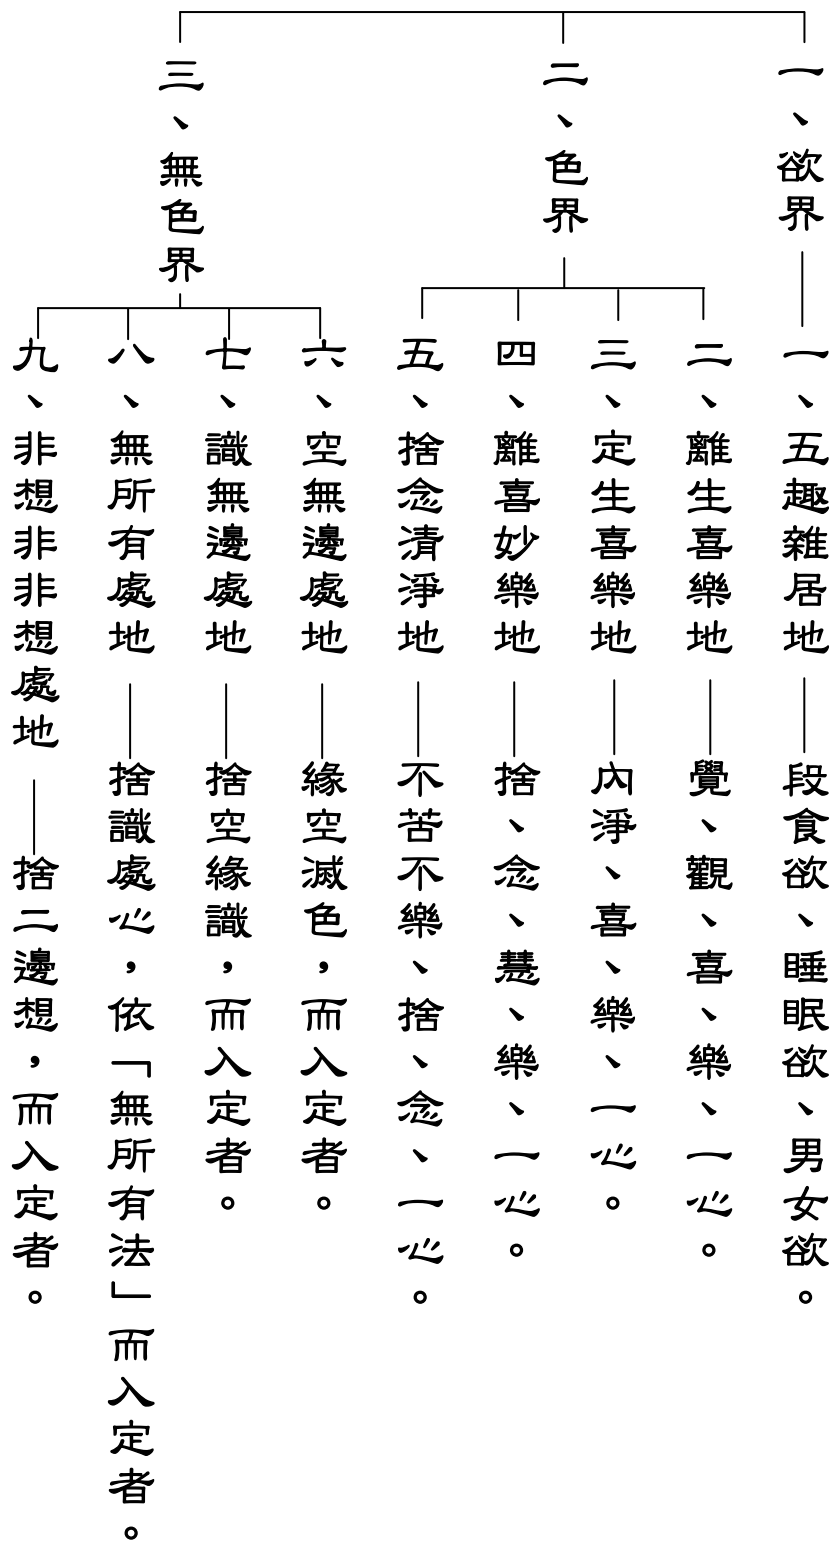 一、欲界
一、五趣雜居地
段食欲、睡眠欲、男女欲。
二、色界
二、離生喜樂地
覺、觀、喜、樂、一心。
三、定生喜樂地
內淨、喜、樂、一心。
四、離喜妙樂地
捨、念、慧、樂、一心。
五、捨念清淨地
不苦不樂、捨、念、一心。
三、無色界
六、空無邊處地
緣空滅色，而入定者。
七、識無邊處地
捨空緣識，而入定者。
八、無所有處地
捨識處心，依「無所有法」而入定者。
九、非想非非想處地
捨二邊想，而入定者。